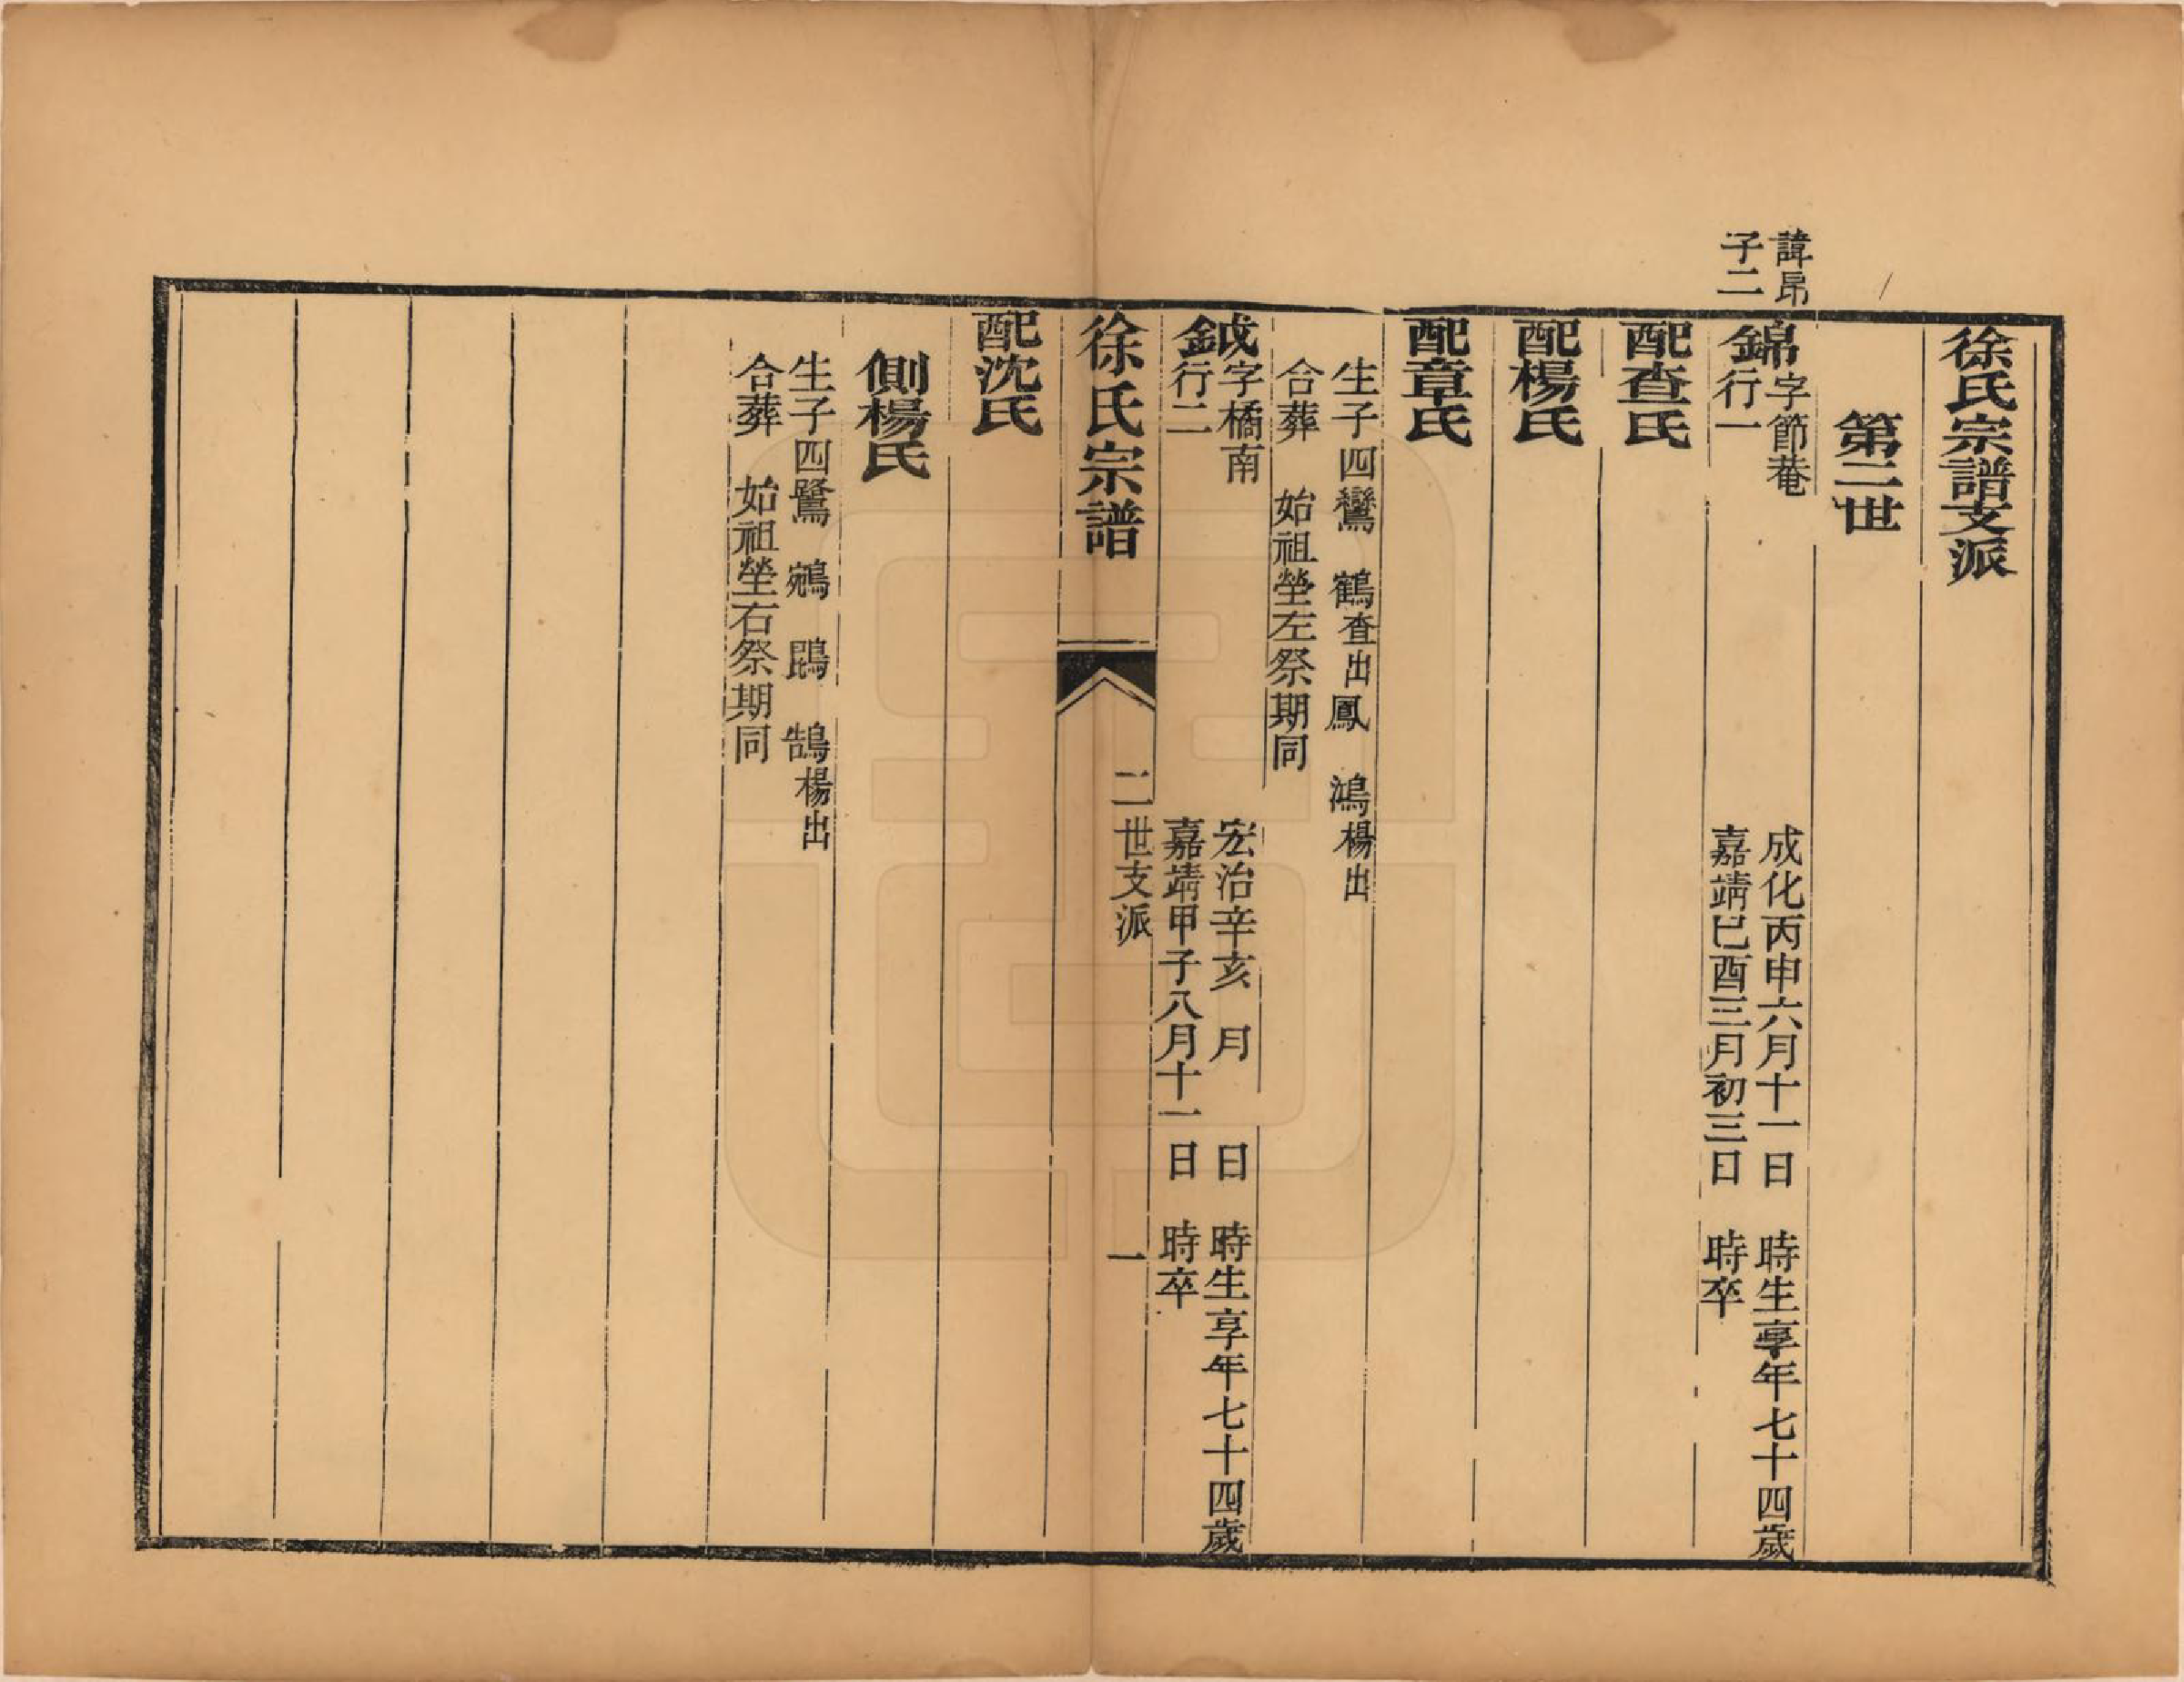 徐氏宗譜支派
第二世
諱昂
子二
錦
字節菴
行一
成化丙申六月十一日　時生享年七十四歲
嘉靖巳酉三月初三日　時卒
配查氏
配楊氏
配章氏
生子四鸞　鶴查出鳳　鴻楊出
合葬　始祖塋左祭期同
鉞
字橘南
行二
宏治辛亥　月　日　時生享年七十四歲
嘉靖甲子八月十一日　時卒
徐氏宗譜
二世支派
一
配沈氏
側楊氏
生子四鷺　鵷　鵾　鵠楊出
合葬　始祖塋右祭期同